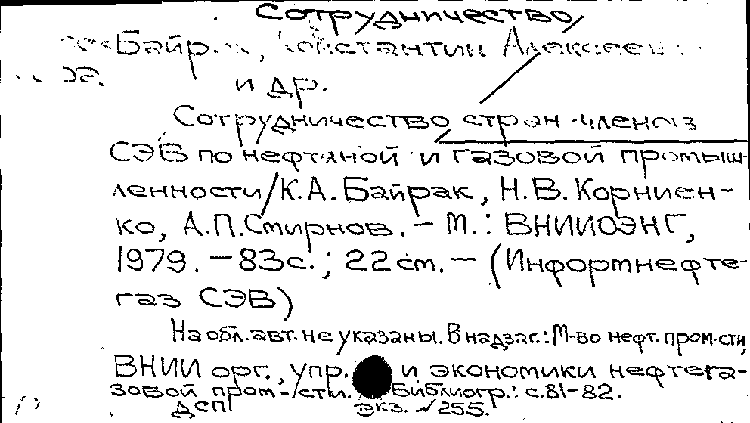 Сотрудничество
Байрак, Константин Алексеевич
и др.
Сотрудничество стран-членов
СЭВ по нефтяной и газовой промыш-
ленности/К.А.Байрак, Н.В.Корниен-
ко, А.П.Смирнов. – М.: ВНИИОЭНГ,
1979. – 83с.; 22см. – (Информнефте-
газ СЭВ)
На обл. авт. не указаны. В надзаг.: М-во нефт. пром-сти,
ВНИИ орг., упр. и экономики нефтега-
зовой пром-сти. Библиогр.: с.81-82.
ДСП Экз. №255.